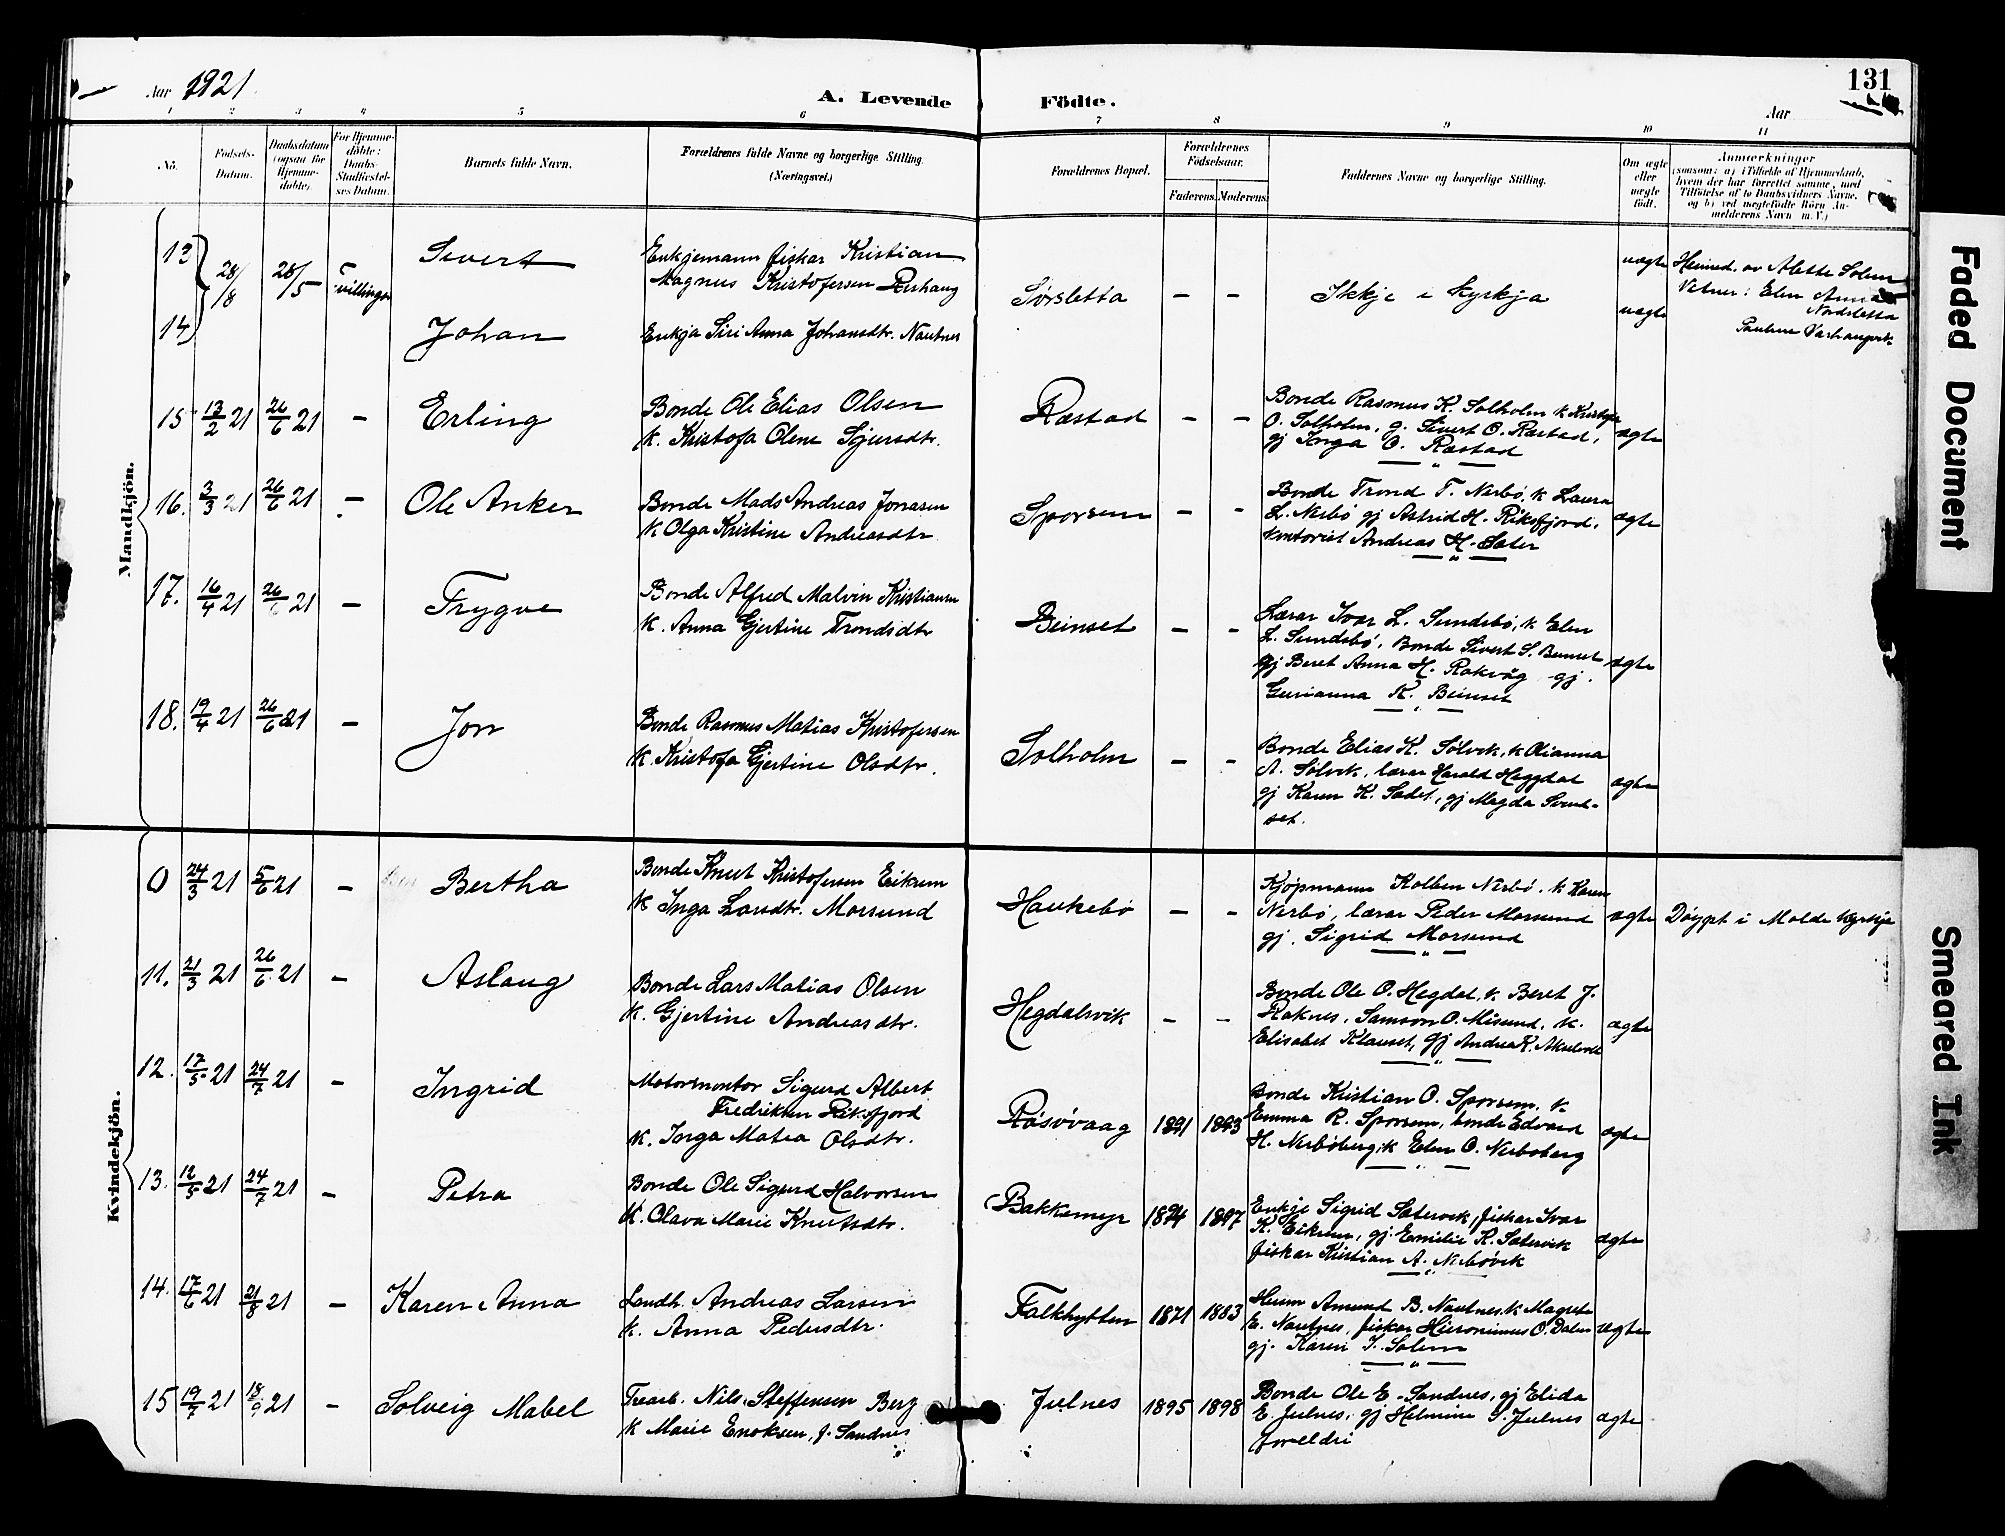 Aar 1921
A. Levende Födte.
Aar
131
1 2 3 4 5 6 7 8 9 10 11
No.
Födsels-Datum.
Daabsdatum (ogsaa for Hjemmedöbte)
For Hjemmedöbte: Daabs-Stadfæstelses Datum.
Barnets fulde Navn.
Forældrenes fulde Navne og borgerlige Stilling. (Næringsvei.)
Forældrenes Bopæl.
Forældrenes Födselsaar.
Faderens. Moderens.
Faddernes Navne og borgerlige Stilling.
Om ægte eller uægte födt.
Anmærkninger
(saasom: a) i Tilfælde af Hjemmedaab, hvem der har forrettet samme, med Tilföielse af to Daabsvidners Navne, og b) ved uægtefödte Börn Anmelderens Navn m. V.)
Mandkjön.
13 28/8 28/5 Tvillingar Sivert
Enkjemann fiskar Kristian
Magnus Kristofersen
Sørsletta - - Ikkje i kyrkja
uægte
Heimed. av Alette Solem
Vitner: Elen Anna
Nordsletta
14 Johan
Enkja Siri Anna Johansdtr. Nautnes
uægte
15 13/2 21 26/6 21 - Erling
Bonde Ole Elias Olsen
k. Kristofa Olene Sjursdtr.
Ræstad - -
Bonde Rasmus K. Solholm k Kristofa
O. Solholm, g. Sivert O. Ræstad,
gj Inga O. Ræstad
ægte
16. 3/3 21 26/6 21 - Ole Anker
Bonde Mads Andreas Jonasen
k Olga Kristine Andreasdtr
Sporsem - -
Bonde Trond T. Nerbø, k Laura
L. Nerbø gj Astrid H. Riksfjord,
kontorist Andreas H. Sæter
ægte
17. 16/4 21 26/6 21 - Trygve
Bonde Alfred Malvin Kristiansen
k. Anna Gjertine Trondsdtr
Beinset - -
Lærar Ivar L. Sundsbø, k. Elen
L. Sundsbø, Bonde Sivert S. Beinset
gj Beret Anna H. Rakvåg gj.
Gurianna K. Beinset
ægte
18. 19/4 21 26/6 21 - Jon
Bonde Rasmus Matias Kristofersen
k. Kristofa Gjertine Olsdtr.
Solholm - -
Bonde Elias K. Sølvik, k Olianna
A. Sølvik, lærar Harald Heggdal
gj Karen K. Sædet, gj Magda
set.
ægte
Kvindekjön.
0 24/3 21 5/6 21 - Bertha
Bonde Knut Kristofersen Eikrem
k Inga Larsdtr. Morsund
Haukebø - -
Kjøpmann Kolben Nerbø. k Karen
Nerbø, lærar Peder Morsund
gj. Sigrid Morsund
ægte
Døypt i Molde kyrkje
11. 21/3 21 26/6 21 - Aslaug
Bonde Lars Matias Olsen
k. Gjertine Andreasdtr.
Hegdalsvik - -
Bonde Ole O. Hegdal, k. Beret J.
Raknes, Samson O. Misund, k.
Elisabet Klauset, gj Andrea K.
ægte
12. 17/5 21 24/7 21 - Ingrid
Motormontør Sigurd Albert
Fredriksen Riksfjord
k. Inga Matea Olsdtr.
Røsøvaag 1891 1893
Bonde Kristian O. Sporsem. k.
Emma R. Sporsem, bonde Edvard
H. Nerbøberg, k Elen O. Nerbøberg
ægte
13. 12/5 21 24/7 21 - Petra
Bonde Ole Sigurd Halvorsen
k. Olava Marie Knutsdtr.
Bakkemyr 1894 1897
Enkje Sigrid Sætervik, fiskar Ivar
K. Eikrem, gj. Emilie R. Sætervik
fiskar Kristian A. Nerbøvik
ægte
14. 17/6 21 21/8 21 - Karen Anna
Landh. Andreas Larsen
k. Anna Pedersdtr.
Falkhytten 1871 1883
Husm Amund B. Nautnes, k Magrete
E. Nautnes, fiskar Hieronimus O. Dalen
gj. Karen I. Solem
ægte
15 19/7 21 18/9 21 - Solveig Mabel
Trearb. Nils Steffensen Berg
k Marie Enoksen, f. Sandnes
Julnes 1895 1898
Bonde Ole E. Sandnes, gj Elida
E. Julnes, gj Helmine S. Julnes
foreldri
ægte
Faded Document
Smeared Ink